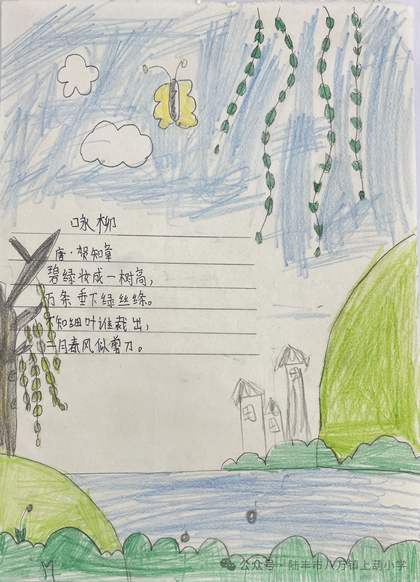 咏柳
唐·贺知章
碧绿妆成一树高,
万条垂下绿丝绦。
不知细叶谁裁出,
二月春风似剪刀。
公众号·陆丰市八万镇上葫小学